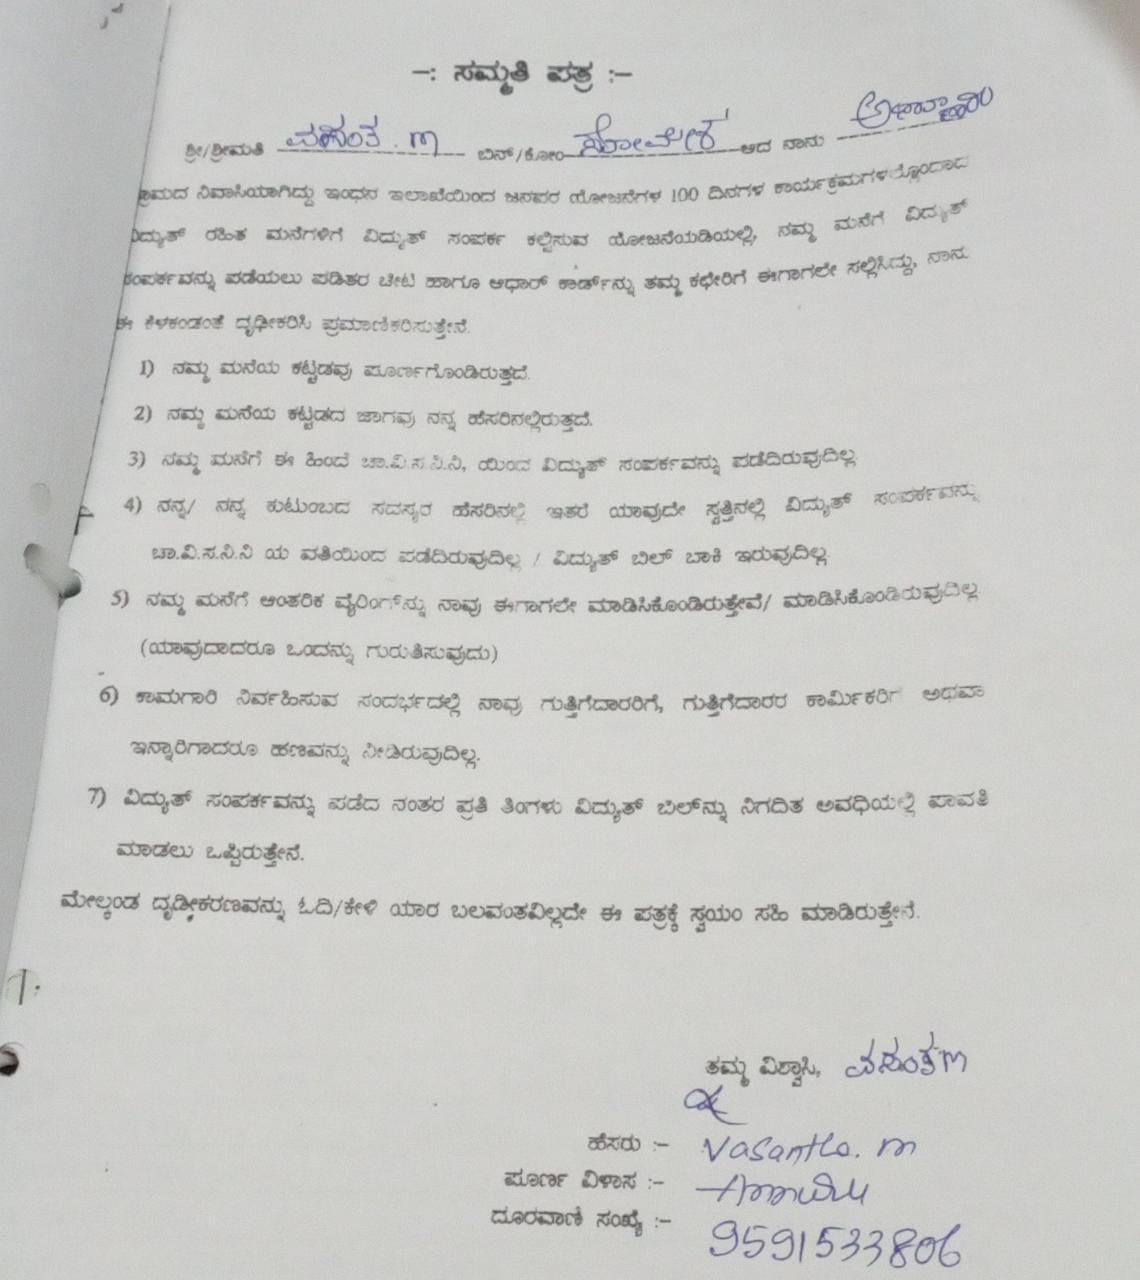 -: ಸಮ್ಮತಿ ಪತ್ರ :-
ಶ್ರೀ/ಶ್ರೀಮತಿ ವಸಂತ. m ಬಿನ್/ಕೋಂ ಸೋಮೇಶ ಆದ ನಾನು
ಗ್ರಾಮದ ನಿವಾಸಿಯಾಗಿದ್ದು ಇಂಧನ ಇಲಾಖೆಯಿಂದ ಜನಪರ ಯೋಜನೆಗಳ 100 ದಿನಗಳ ಕಾರ್ಯಕ್ರಮಗಳಲ್ಲೊಂದಾದ
ವಿದ್ಯುತ್ ರಹಿತ ಮನೆಗಳಿಗೆ ವಿದ್ಯುತ್ ಸಂಪರ್ಕ ಕಲ್ಪಿಸುವ ಯೋಜನೆಯಡಿಯಲ್ಲಿ, ನಮ್ಮ ಮನೆಗೆ ವಿದ್ಯುತ್
ಸಂಪರ್ಕವನ್ನು ಪಡೆಯಲು ಪಡಿತರ ಚೀಟಿ ಹಾಗೂ ಆಧಾರ್ ಕಾರ್ಡ್‌ನ್ನು ತಮ್ಮ ಕಛೇರಿಗೆ ಈಗಾಗಲೇ ಸಲ್ಲಿಸಿದ್ದು, ನಾನು
ಈ ಕೆಳಕಂಡಂತೆ ದೃಢೀಕರಿಸಿ ಪ್ರಮಾಣಿಕರಿಸುತ್ತೇನೆ.
1) ನಮ್ಮ ಮನೆಯ ಕಟ್ಟಡವು ಪೂರ್ಣಗೊಂಡಿರುತ್ತದೆ.
2) ನಮ್ಮ ಮನೆಯ ಕಟ್ಟಡದ ಜಾಗವು ನನ್ನ ಹೆಸರಿನಲ್ಲಿರುತ್ತದೆ.
3) ನಮ್ಮ ಮನೆಗೆ ಈ ಹಿಂದೆ ಚಾ.ವಿ.ಸ.ನಿ.ನಿ, ಯಿಂದ ವಿದ್ಯುತ್ ಸಂಪರ್ಕವನ್ನು ಪಡೆದಿರುವುದಿಲ್ಲ
4) ನನ್ನ/ ನನ್ನ ಕುಟುಂಬದ ಸದಸ್ಯರ ಹೆಸರಿನಲ್ಲಿ ಇತರೆ ಯಾವುದೇ ಸ್ವತ್ತಿನಲ್ಲಿ ವಿದ್ಯುತ್ ಸಂಪರ್ಕವನ್ನು
ಚಾ.ವಿ.ಸ.ನಿ.ನಿ ಯ ವತಿಯಿಂದ ಪಡೆದಿರುವುದಿಲ್ಲ / ವಿದ್ಯುತ್ ಬಿಲ್ ಬಾಕಿ ಇರುವುದಿಲ್ಲ
5) ನಮ್ಮ ಮನೆಗೆ ಆಂತರಿಕ ವೈರಿಂಗ್‌ನ್ನು ನಾವು ಈಗಾಗಲೇ ಮಾಡಿಸಿಕೊಂಡಿರುತ್ತೇವೆ/ ಮಾಡಿಸಿಕೊಂಡಿರುವುದಿಲ್ಲ
(ಯಾವುದಾದರೂ ಒಂದನ್ನು ಗುರುತಿಸುವುದು)
6) ಕಾಮಗಾರಿ ನಿರ್ವಹಿಸುವ ಸಂದರ್ಭದಲ್ಲಿ ನಾವು ಗುತ್ತಿಗೆದಾರರಿಗೆ, ಗುತ್ತಿಗೆದಾರರ ಕಾರ್ಮಿಕರಿಗೆ ಅಥವಾ
ಇನ್ನಾರಿಗಾದರೂ ಹಣವನ್ನು ನೀಡಿರುವುದಿಲ್ಲ.
7) ವಿದ್ಯುತ್ ಸಂಪರ್ಕವನ್ನು ಪಡೆದ ನಂತರ ಪ್ರತಿ ತಿಂಗಳು ವಿದ್ಯುತ್ ಬಿಲ್‌ನ್ನು ನಿಗದಿತ ಅವಧಿಯಲ್ಲಿ ಪಾವತಿ
ಮಾಡಲು ಒಪ್ಪಿರುತ್ತೇನೆ.
ಮೇಲ್ಕಂಡ ದೃಢೀಕರಣವನ್ನು ಓದಿ/ಕೇಳಿ ಯಾರ ಬಲವಂತವಿಲ್ಲದೇ ಈ ಪತ್ರಕ್ಕೆ ಸ್ವಯಂ ಸಹಿ ಮಾಡಿರುತ್ತೇನೆ.
ತಮ್ಮ ವಿಶ್ವಾಸಿ, ವಸಂತ m
ಹೆಸರು :- Vasantha. m
ಪೂರ್ಣ ವಿಳಾಸ :-
ದೂರವಾಣಿ ಸಂಖ್ಯೆ :- 9591533806